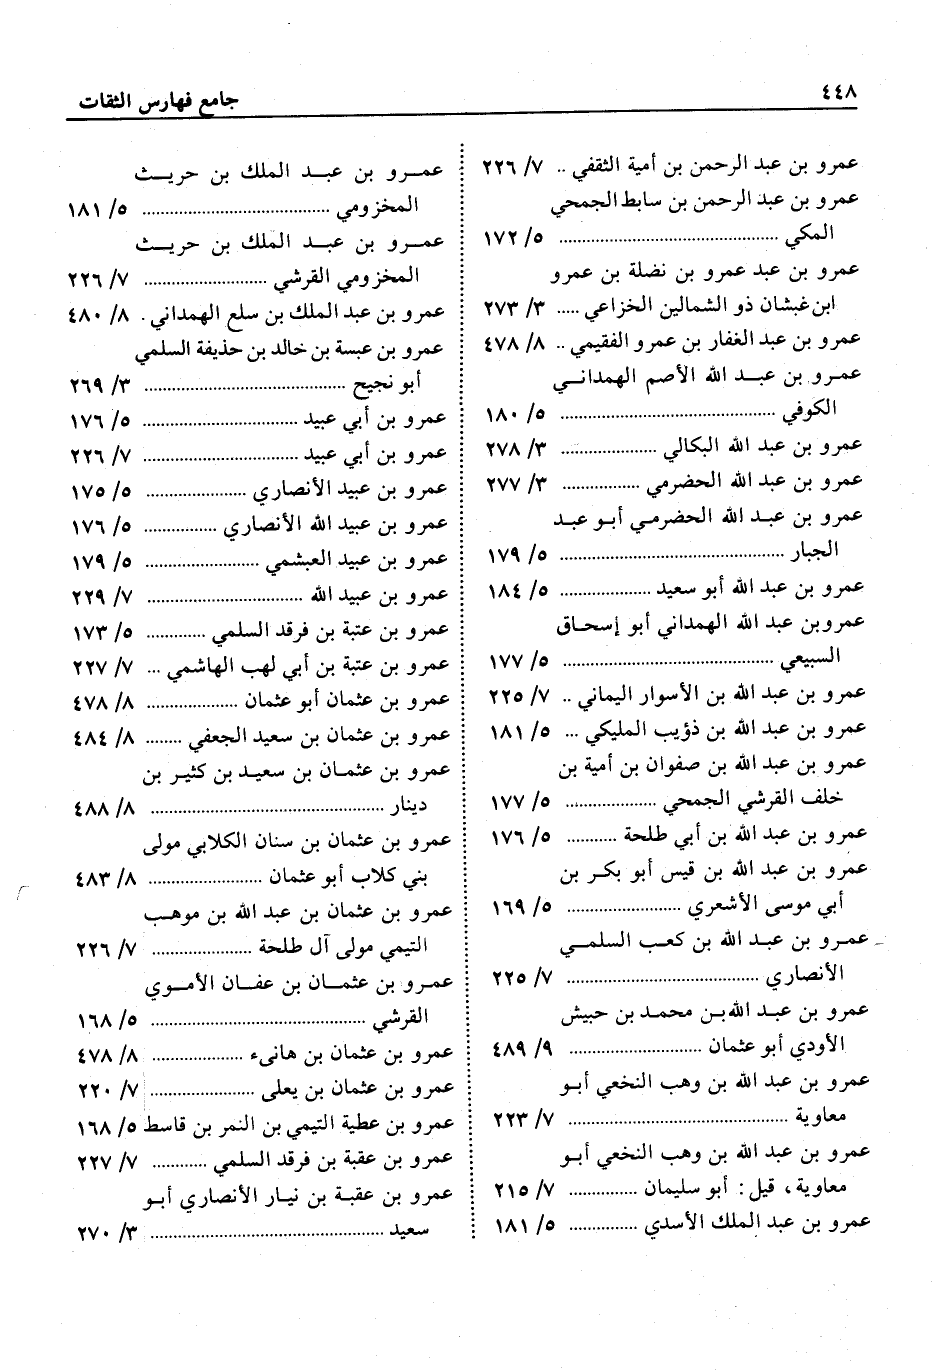 ٤٤٨
جامع فهارس الثقات
عمرو بن عبد الرحمن بن أمية الثقفي .. ٧/ ٢٢٦
عمرو بن عبد الرحمن بن سابط الجمحي
المكي ........ ٥/ ١٧٢
عمرو بن عبد عمرو بن نضلة بن عمرو
ابن غبشان ذو الشمالين الخزاعي ..... ٣/ ٢٧٣
عمرو بن عبد الغفار بن عمرو الفقيمي .. ٨/ ٤٧٨
عمرو بن عبد الله الأصم الهمداني
الكوفي ........ ٥/ ١٨٠
عمرو بن عبد الله البكالي ........ ٣/ ٢٧٨
عمرو بن عبد الله الحضرمي ........ ٣/ ٢٧٧
عمرو بن عبد الله الحضرمي أبو عبد
الجبار ........ ٥/ ١٧٩
عمرو بن عبد الله أبو سعيد ........ ٥/ ١٨٤
عمروبن عبد الله الهمداني أبو إسحاق
السبيعي ........ ٥/ ١٧٧
عمرو بن عبد الله بن الأسوار اليماني .. ٧/ ٢٢٥
عمرو بن عبد الله بن ذؤيب المليكي ... ٥/ ١٨١
عمرو بن عبد الله بن صفوان بن أمية بن
خلف القرشي الجمحي ........ ٥/ ١٧٧
عمرو بن عبد الله بن أبي طلحة ........ ٥/ ١٧٦
عمرو بن عبد الله بن قيس أبو بكر بن
أبي موسى الأشعري ........ ٥/ ١٦٩
عمرو بن عبد الله بن كعب السلمي
الأنصاري ........ ٧/ ٢٢٥
عمرو بن عبد الله بن محمد بن حبيش
الأودي أبو عثمان ........ ٩/ ٤٨٩
عمرو بن عبد الله بن وهب النخعي أبو
معاوية ........ ٧/ ٢٢٣
عمرو بن عبد الله بن وهب النخعي أبو
معاوية، قيل: أبو سليمان ........ ٧/ ٢١٥
عمرو بن عبد الملك الأسدي ........ ٥/ ١٨١
عمرو بن عبد الملك بن حريث
المخزومي ........ ٥/ ١٨١
عمرو بن عبد الملك بن حريث
المخزومي القرشي ........ ٧/ ٢٢٦
عمرو بن عبد الملك بن سلع الهمداني . ٨/ ٤٨٠
عمرو بن عبسة بن خالد بن حذيفة السلمي
أبو نجيح ........ ٣/ ٢٦٩
عمرو بن أبي عبيد ........ ٥/ ١٧٦
عمرو بن أبي عبيد ........ ٧/ ٢٢٦
عمرو بن عبيد الأنصاري ........ ٥/ ١٧٥
عمرو بن عبيد الله الأنصاري ........ ٥/ ١٧٦
عمرو بن عبيد العبشمي ........ ٥/ ١٧٩
عمرو بن عبيد الله ........ ٧/ ٢٢٩
عمرو بن عتبة بن فرقد السلمي ........ ٥/ ١٧٣
عمرو بن عتبة بن أبي لهب الهاشمي ... ٧/ ٢٢٧
عمرو بن عثمان أبو عثمان ........ ٨/ ٤٧٨
عمرو بن عثمان بن سعيد الجعفي ........ ٨/ ٤٨٤
عمرو بن عثمان بن سعيد بن كثير بن
دينار ........ ٨/ ٤٨٨
عمرو بن عثمان بن سنان الكلابي مولى
بني كلاب أبو عثمان ........ ٨/ ٤٨٣
عمرو بن عثمان بن عبد الله بن موهب
التيمي مولى آل طلحة ........ ٧/ ٢٢٦
عمرو بن عثمان بن عفان الأموي
القرشي ........ ٥/ ١٦٨
عمرو بن عثمان بن هانىء ........ ٨/ ٤٧٨
عمرو بن عثمان بن يعلى ........ ٧/ ٢٢٠
عمرو بن عطية التيمي بن النمر بن قاسط ٥/ ١٦٨
عمرو بن عقبة بن فرقد السلمي ........ ٧/ ٢٢٧
عمرو بن عقبة بن نيار الأنصاري أبو
سعيد ........ ٣/ ٢٧٠